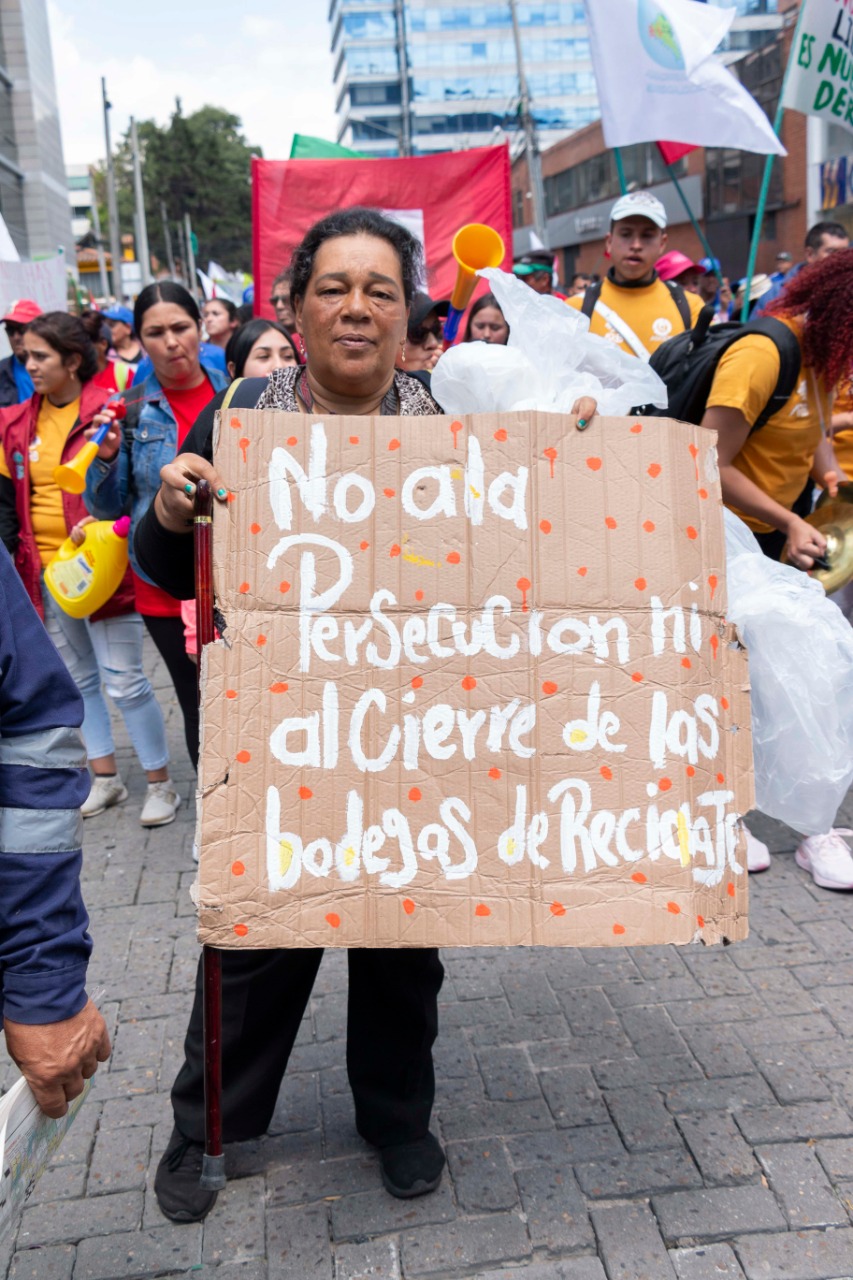 LI
ES NU
DER
No a la
Persecucion ni
al Cierre de las
bodegas de ReciclaJe